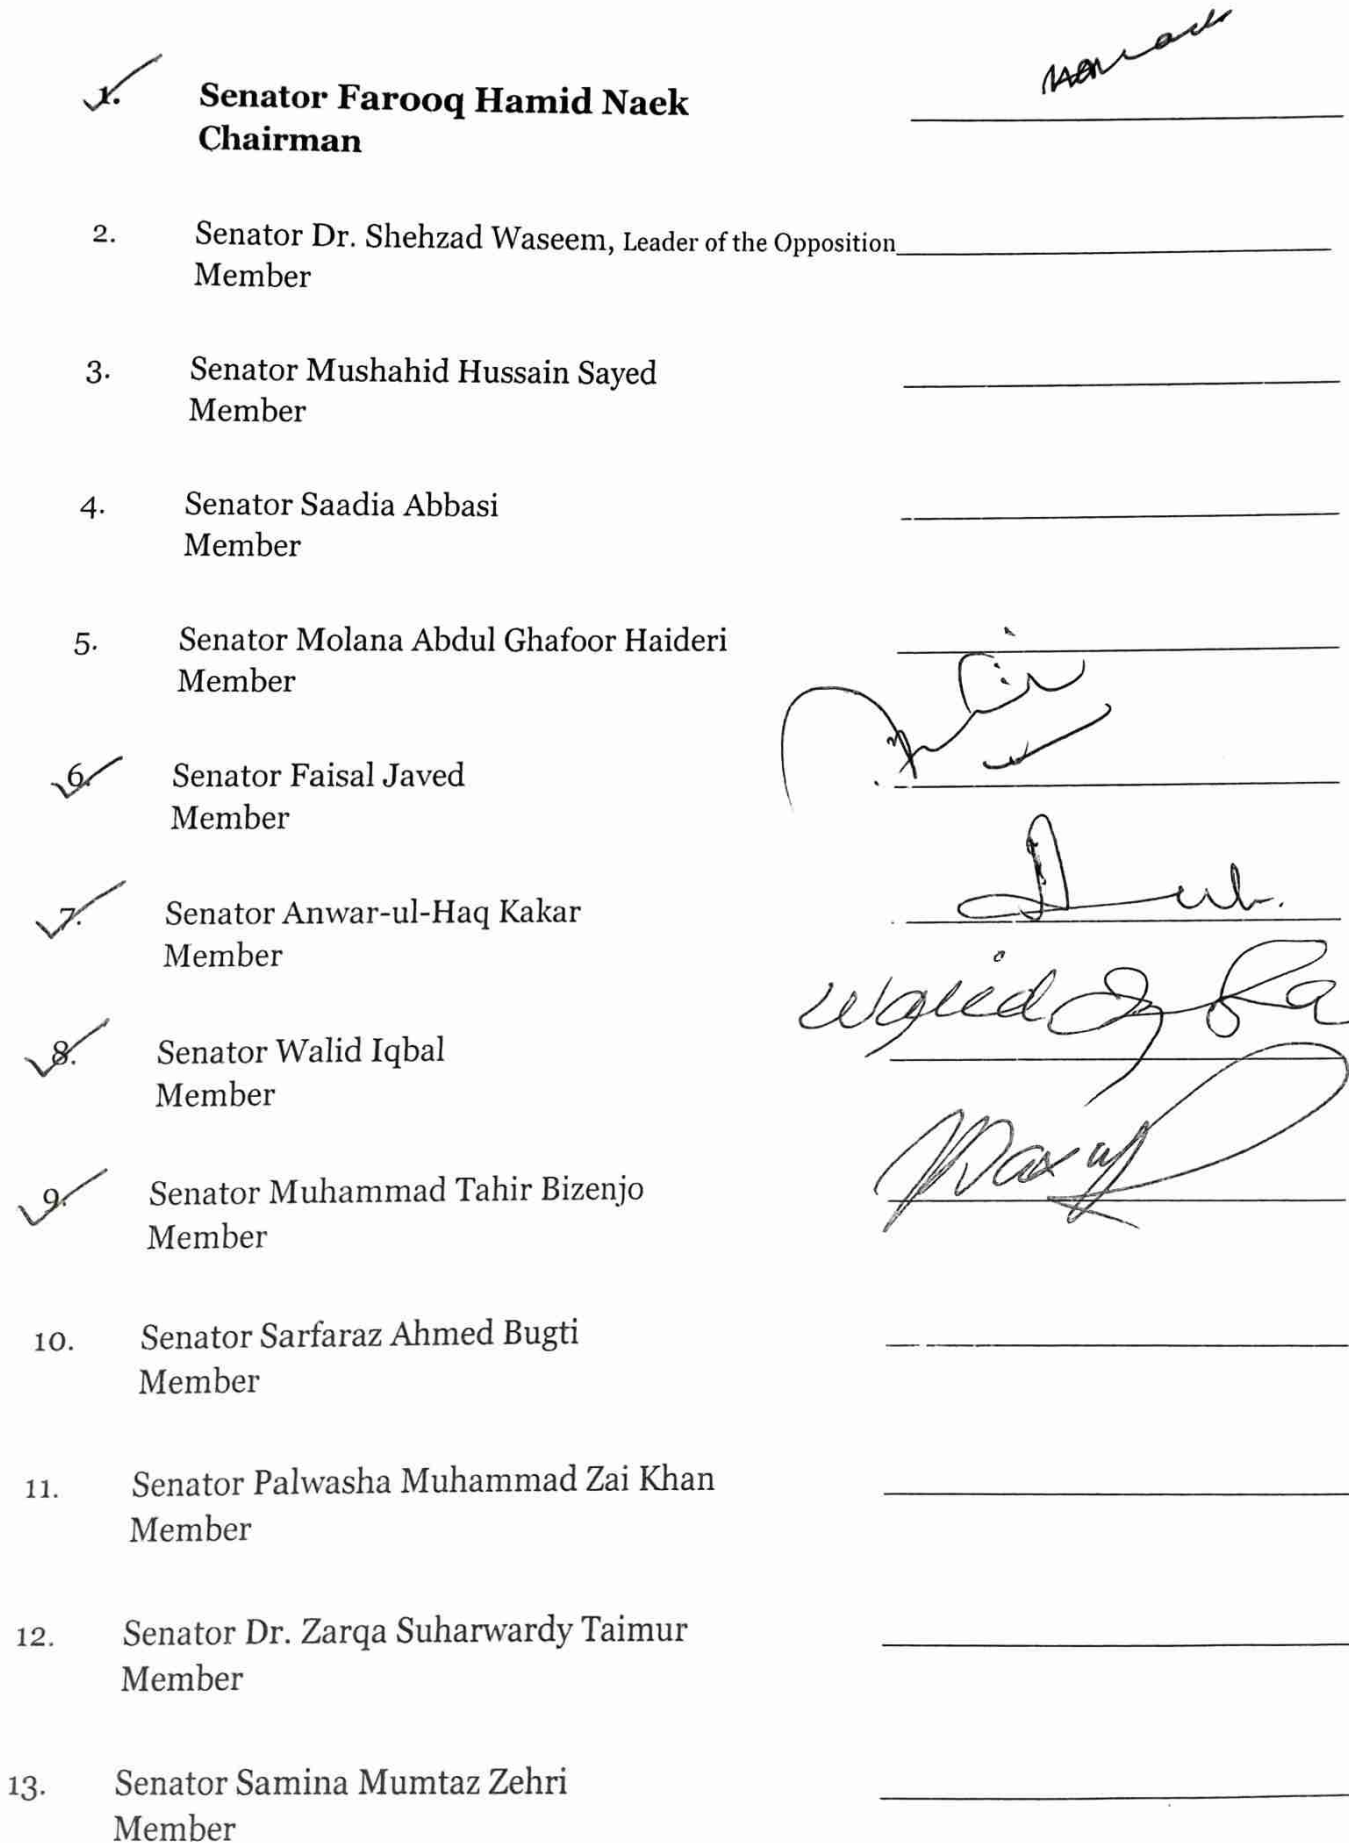 1. Senator Farooq Hamid Naek
Chairman
2. Senator Dr. Shehzad Waseem, Leader of the Opposition
Member
3. Senator Mushahid Hussain Sayed
Member
4. Senator Saadia Abbasi
Member
5. Senator Molana Abdul Ghafoor Haideri
Member
6. Senator Faisal Javed
Member
7. Senator Anwar-ul-Haq Kakar
Member
8. Senator Walid Iqbal
Member
9. Senator Muhammad Tahir Bizenjo
Member
10. Senator Sarfaraz Ahmed Bugti
Member
11. Senator Palwasha Muhammad Zai Khan
Member
12. Senator Dr. Zarqa Suharwardy Taimur
Member
13. Senator Samina Mumtaz Zehri
Member